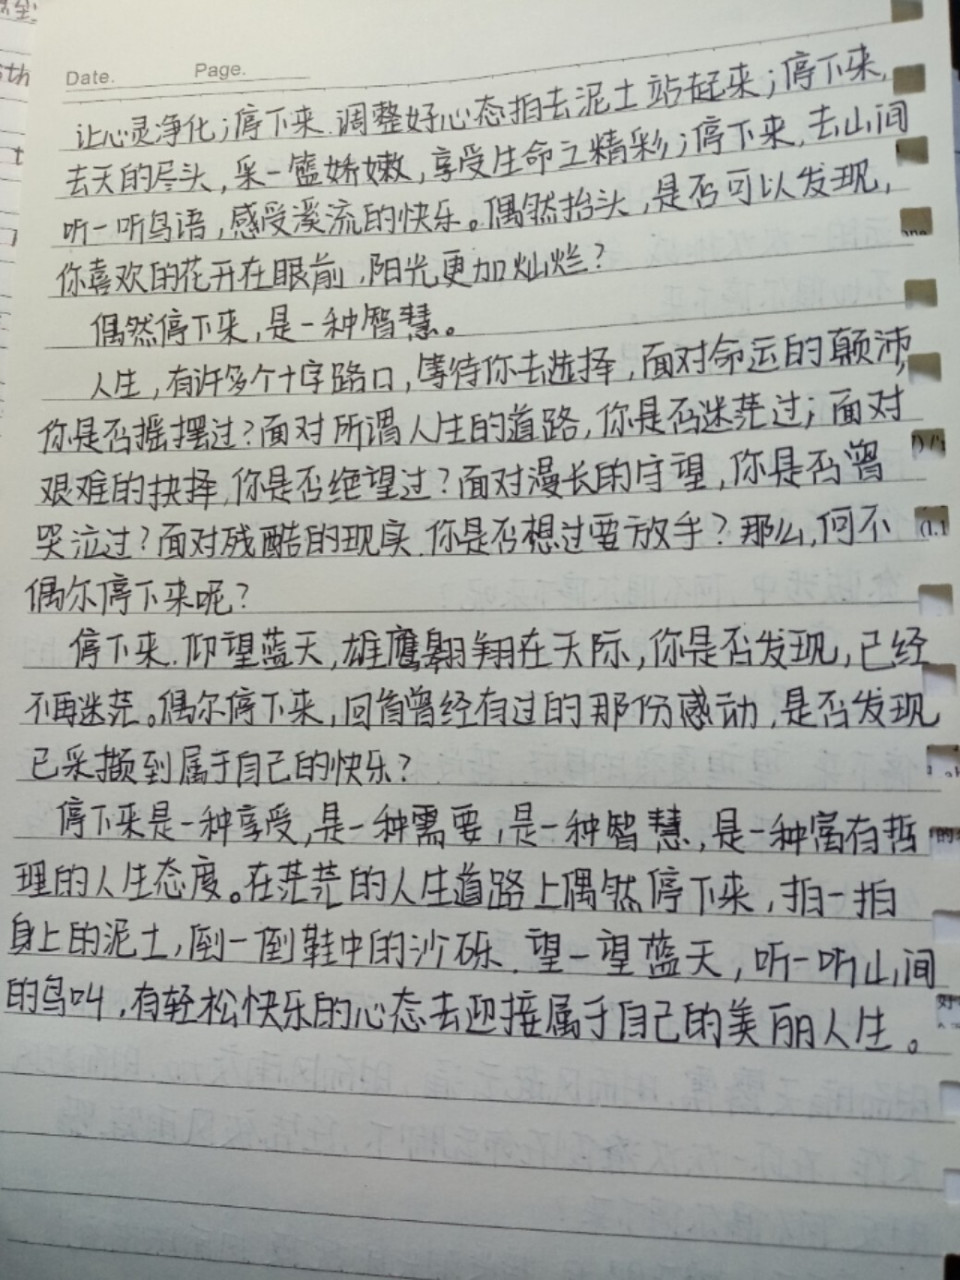 Date.  Page.
让心灵净化；停下来.调整好心态拍去泥土站起来；停下来,
去天的尽头,采一篮娇嫩,享受生命之精彩；停下来,去山间
听一听鸟语,感受溪流的快乐。偶然抬头,是否可以发现,
你喜欢的花开在眼前,阳光更加灿烂？
偶然停下来,是一种智慧。
人生,有许多个十字路口,等待你去选择,面对命运的颠沛,
你是否摇摆过？面对所谓人生的道路,你是否迷茫过；面对
艰难的抉择,你是否绝望过？面对漫长的守望,你是否曾
哭泣过？面对残酷的现实.你是否想过要放手？那么,何不
偶尔停下来呢？
停下来.仰望蓝天,雄鹰翱翔在天际,你是否发现,已经
不再迷茫。偶尔停下来,回首曾经有过的那份感动,是否发现
已采撷到属于自己的快乐？
停下来是一种享受,是一种需要,是一种智慧,是一种富有哲
理的人生态度。在茫茫的人生道路上偶然停下来,拍一拍
身上的泥土,倒一倒鞋中的沙砾.望一望蓝天,听一听山间
的鸟叫,有轻松快乐的心态去迎接属于自己的美丽人生。